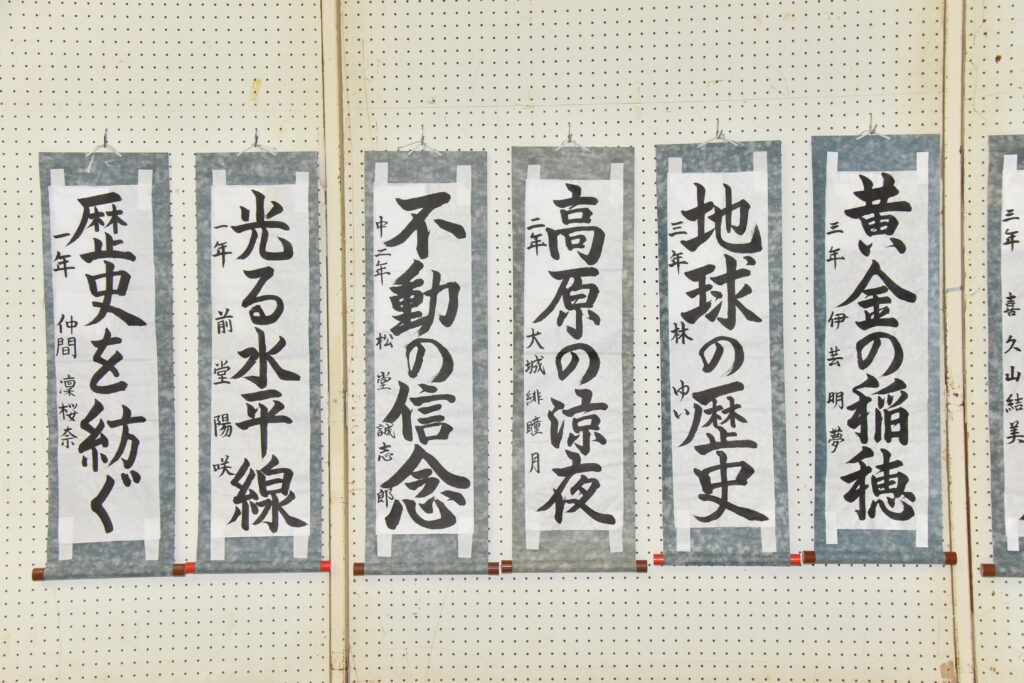 黄金の稲穂
三年 伊芸明夢
地球の歴史
三年 林ゆい
高原の涼夜
二年 大城緋瞳月
不動の信念
中二年 松堂誠志郎
光る水平線
一年 前堂陽咲
歴史を紡ぐ
一年 仲間凜桜奈
三年 喜久山結美